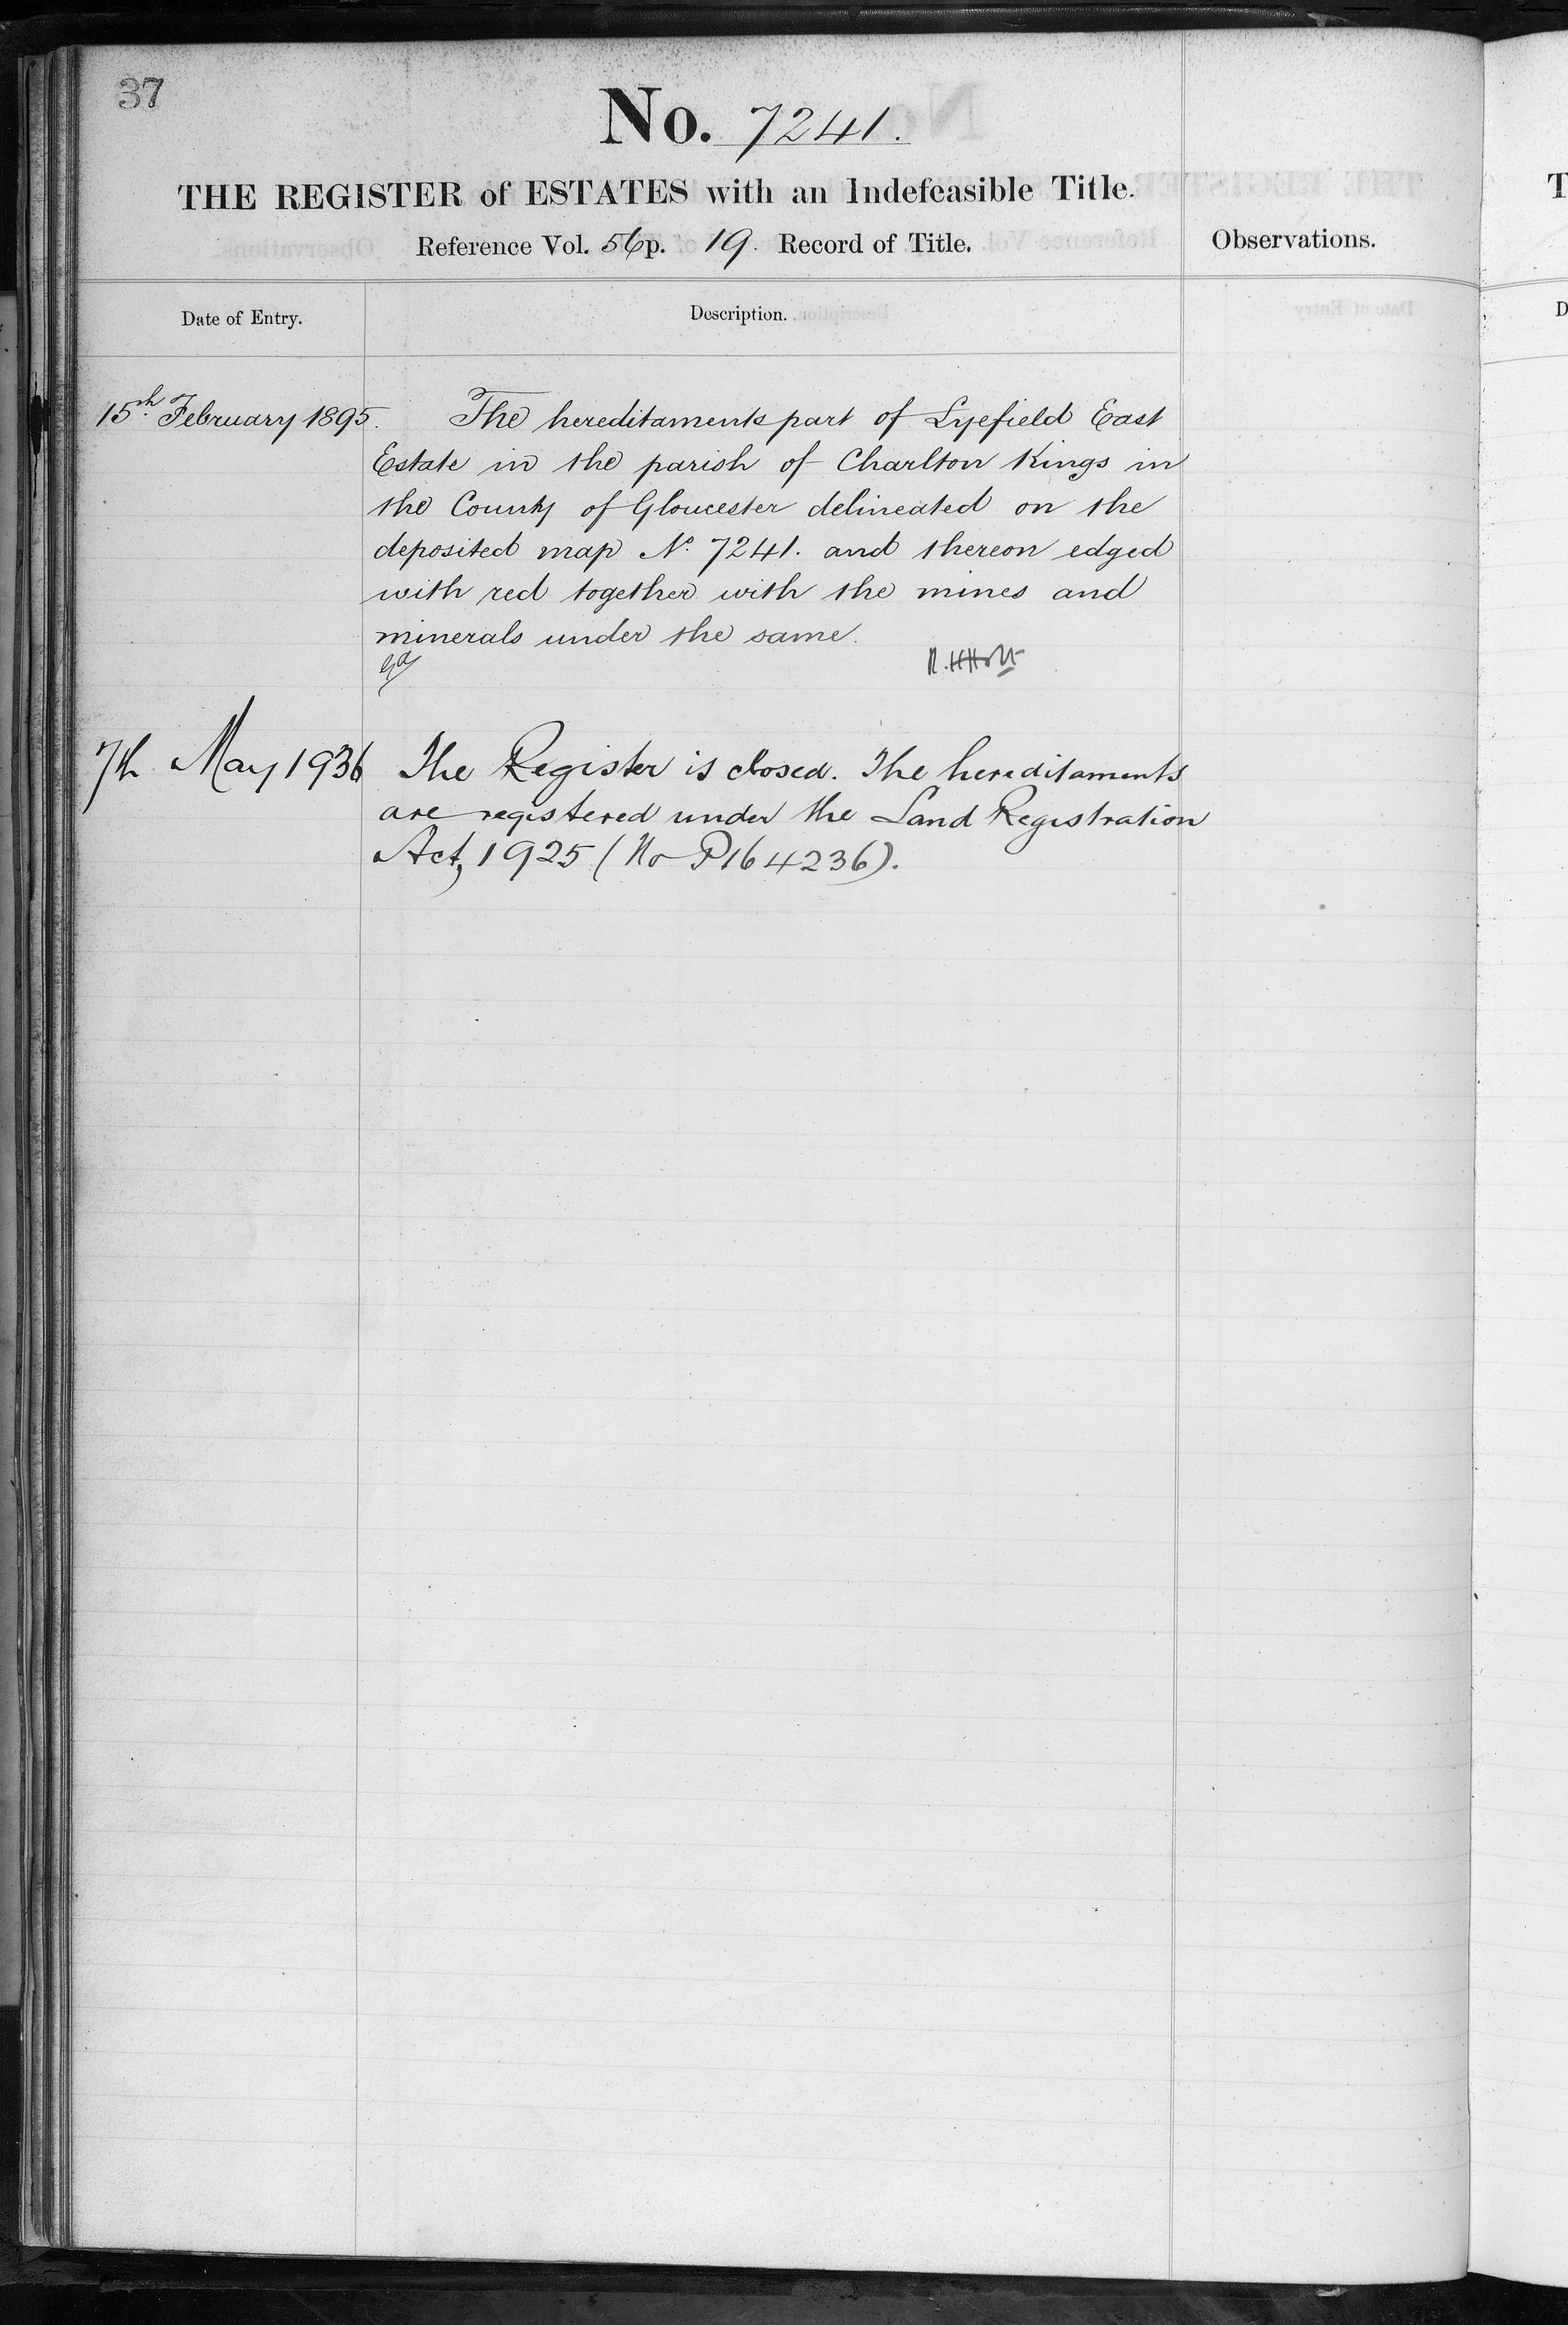 37
No. 7241.
THE REGISTER of ESTATES with an Indefeasible Title.
Reference Vol. 56 p. 19. Record of Title.
Observations.
Date of Entry.
Description.
15th February 1895.
The hereditaments part of Lyefield East
Estate in the parish of Charlton Kings in
the County of Gloucester delineated on the
deposited map No. 7241. and thereon edged
with red together with the mines and
minerals under the same.
7th May 1936
The Register is closed. The hereditaments
are registered under the Land Registration
Act, 1925 (No P164236).